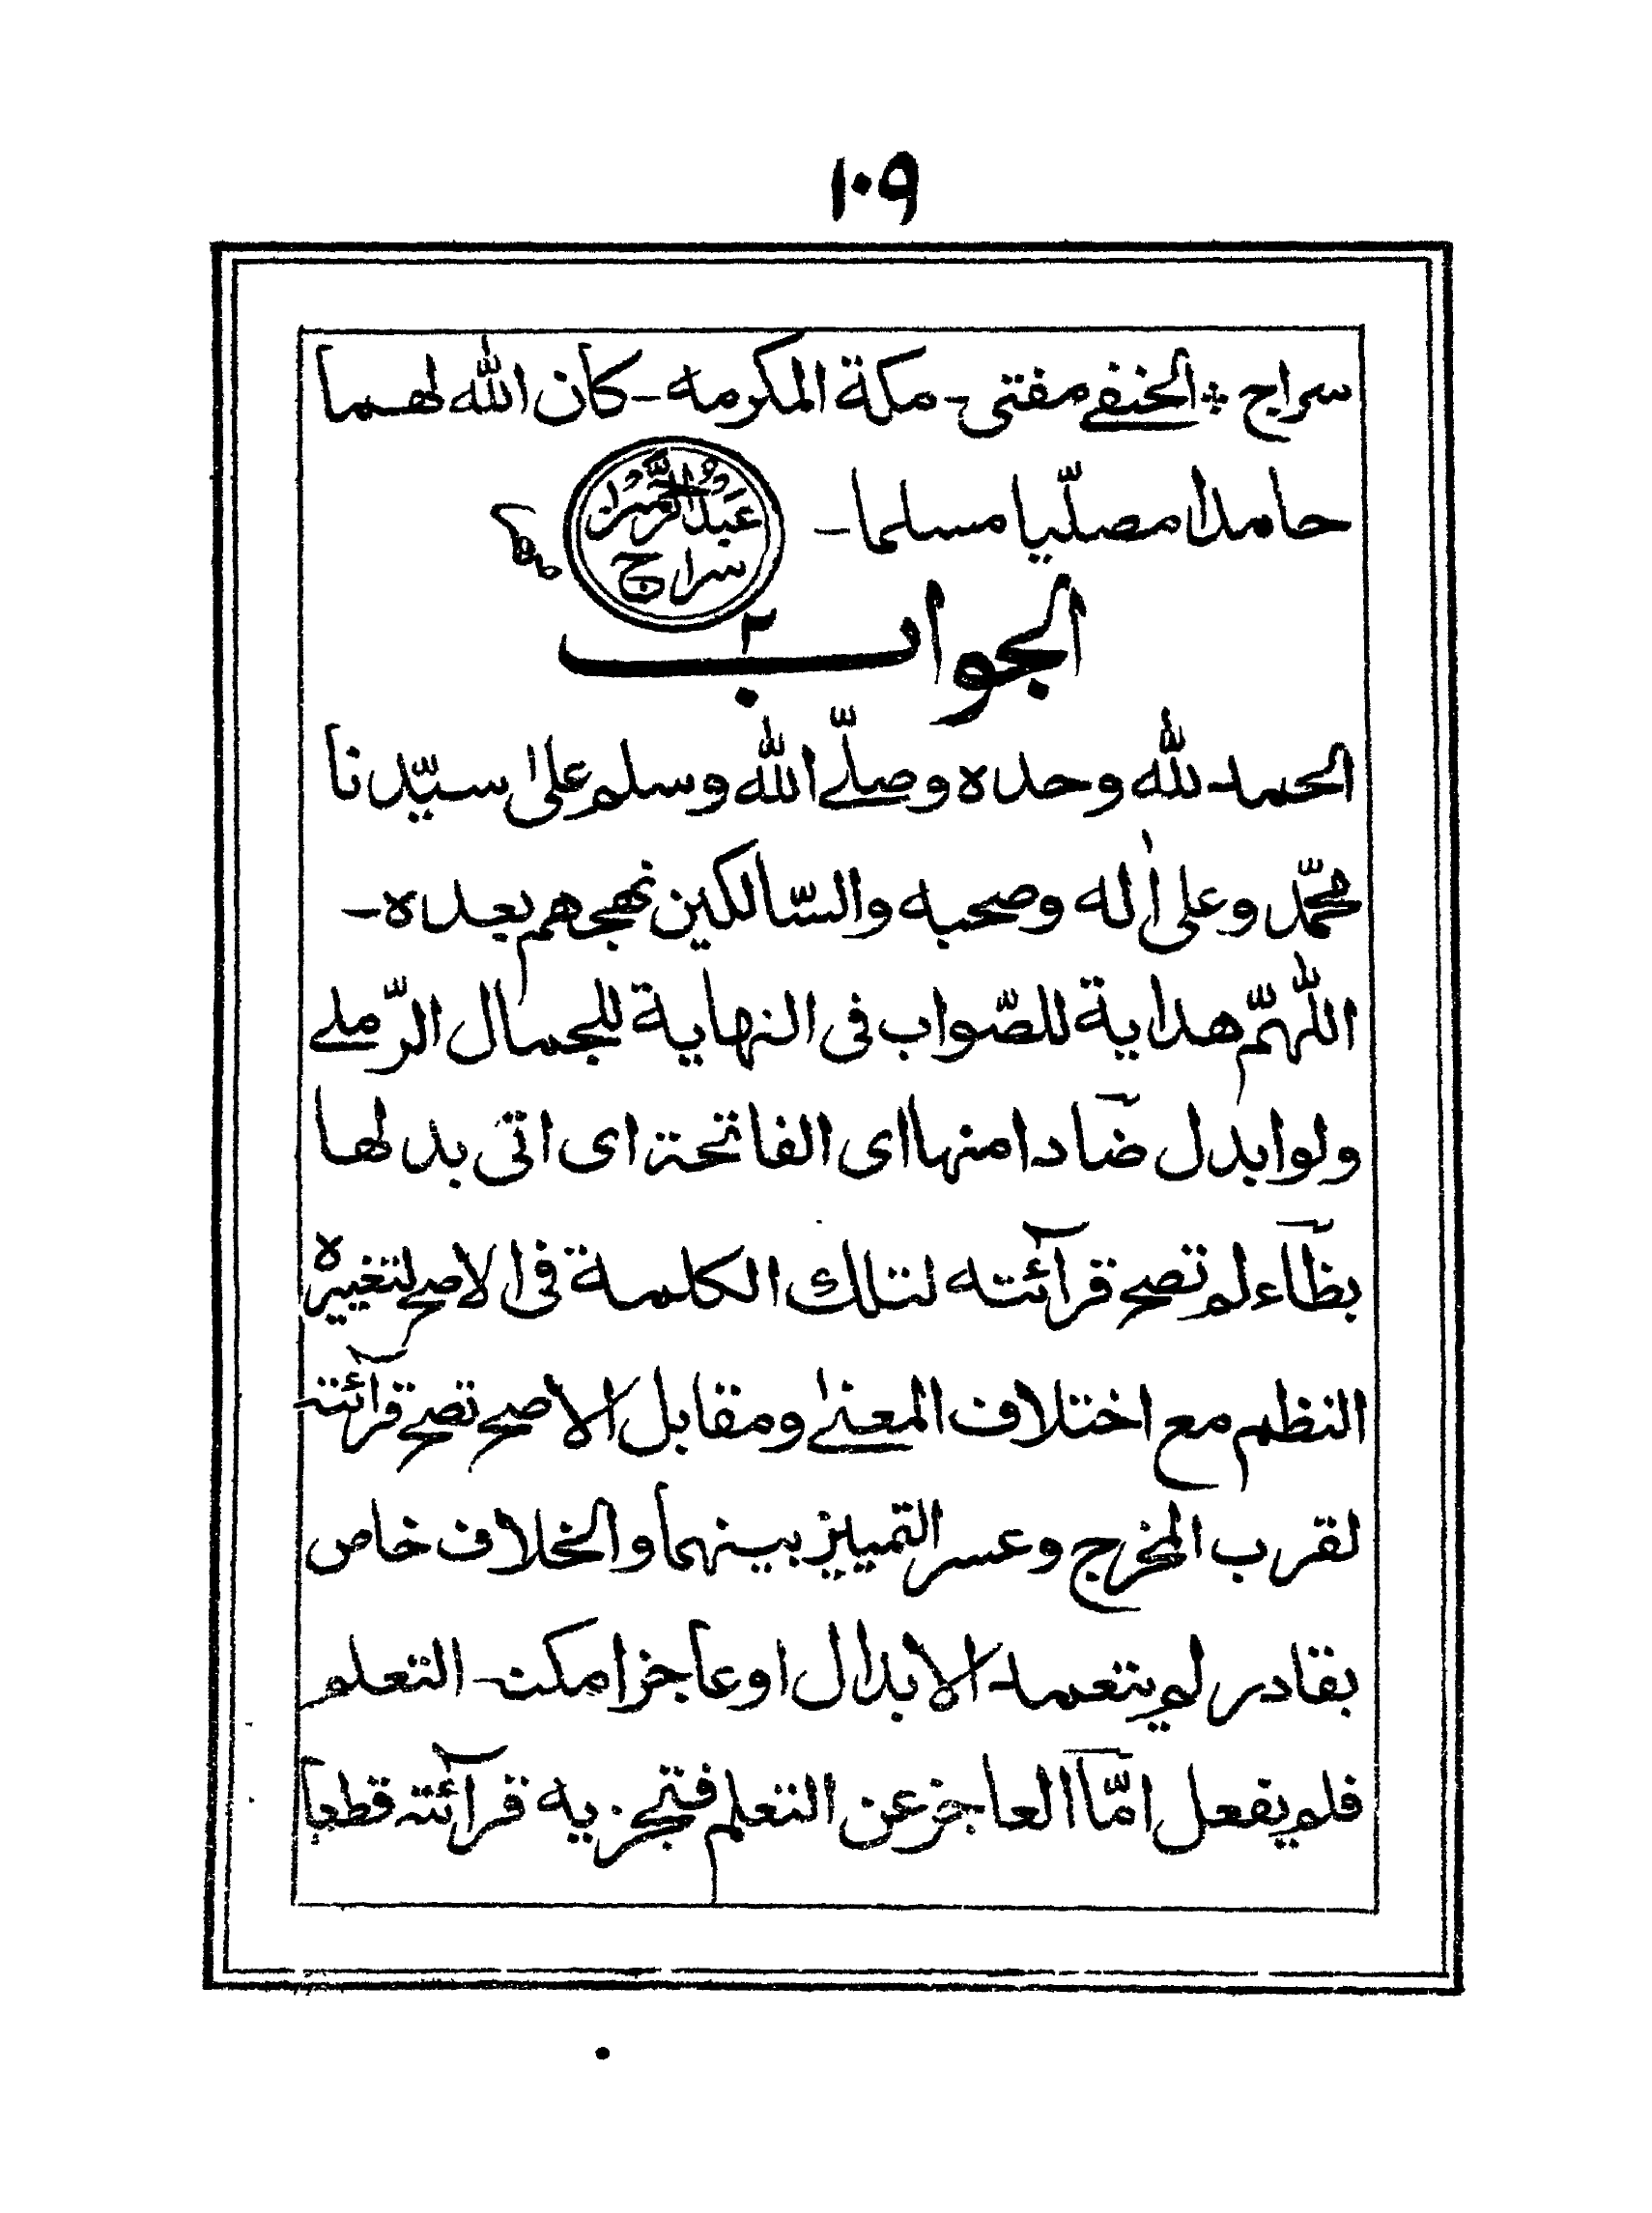 ١٠٩
سراج ؞ الحنفے مفتی ـ مكة المكرمه ـ كان الله لهما
حامدا مصلّيا مسلما ـ
عبدالرحمٰن
سراج
الجواب ٢
الحمد لله وحده وصلّے الله وسلم علىٰ سيّدنا
محمّد وعلى اٰله وصحبه والسّالكين نهجهم بعده ـ
اللّٰهمّ هداية للصّواب فى النهاية للجمال الرّملے
ولو ابدل ضادا منها اى الفاتحة اى اتى بدلها
بظاء لم تصح قرآئته لتلك الكلمة فى الاصح لتغييره
النظم مع اختلاف المعنےٰ ومقابل الاصح تصح قرآئته
لقرب المخرج وعسر التمييز بينهما والخلاف خاص
بقادر لم يتعمد الابدال اوعاجز امكنه التعلم
فلم يفعل امّا العاجز عن التعلم فتجزيه قرآئته قطعا